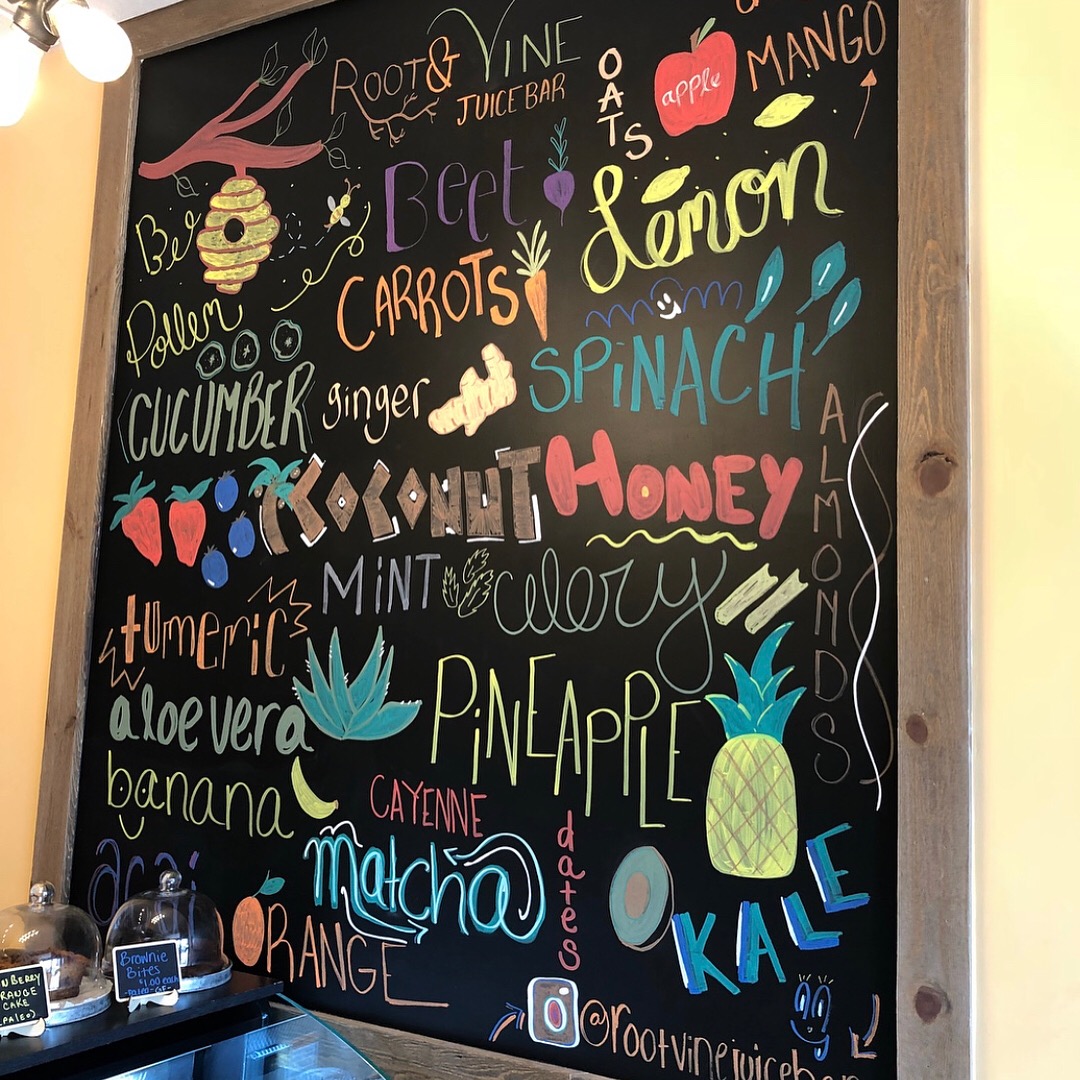 ROOT & VINE
JUICE BAR
OATS
apple
MANGO
Bee
Pollen
Beet
Lemon
CARROTS
mmm
CUCUMBER
ginger
SPiNACH
COCONUT
HONEY
ALMONDS
MiNT
celery
tumeric
aloe vera
PiNEAPPLE
banana
CAYENNE
acai
matcha
dates
KALE
ORANGE
@rootvinejuicebar
RANGE
CAKE
(PALEO)
Brownie
Bites
$1.00 each
-PALEO-GF-